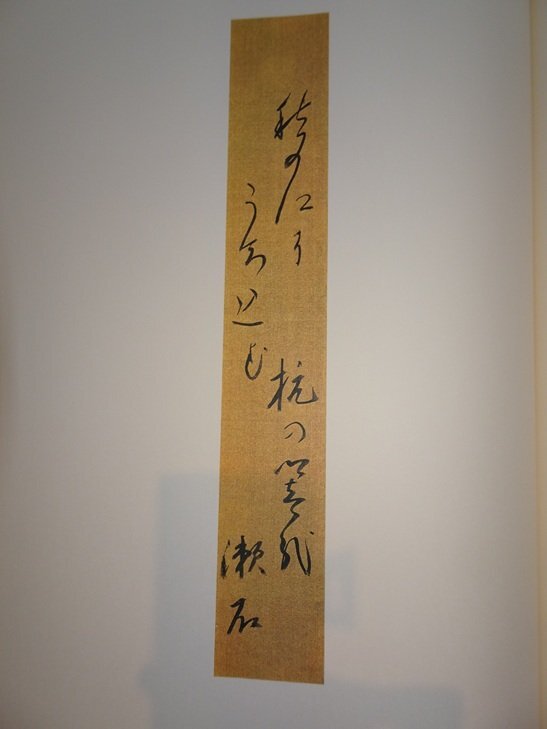 秋の江に
うち込む
杭の響哉
漱石